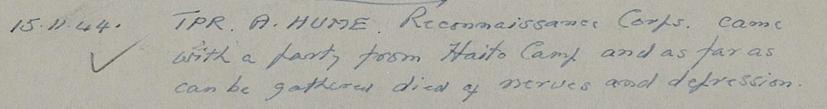 15.11.44. TPR. A. HUME. Reconnaissance Corps. came
with a party from Haito Camp and as far as
can be gathered died of nerves and depression.